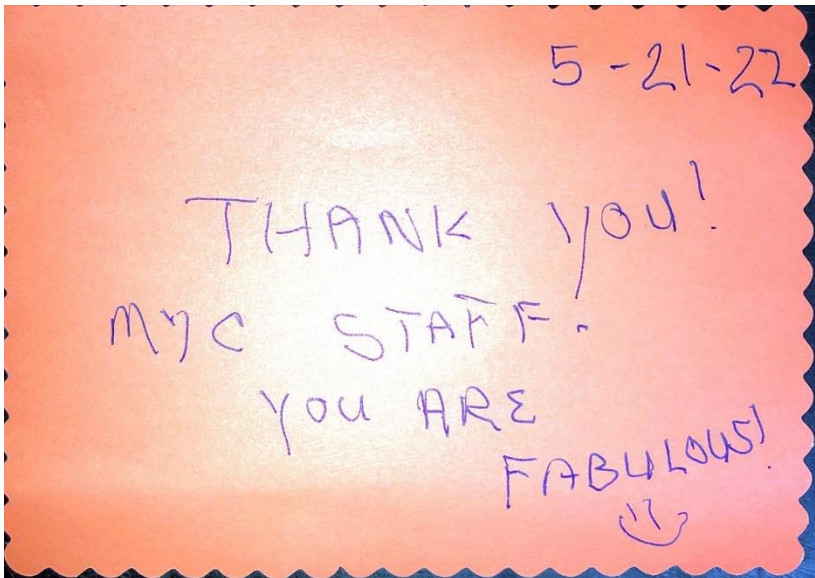 5-21-22
THANK YOU!
MYC STAFF!
YOU ARE
FABULOUS!